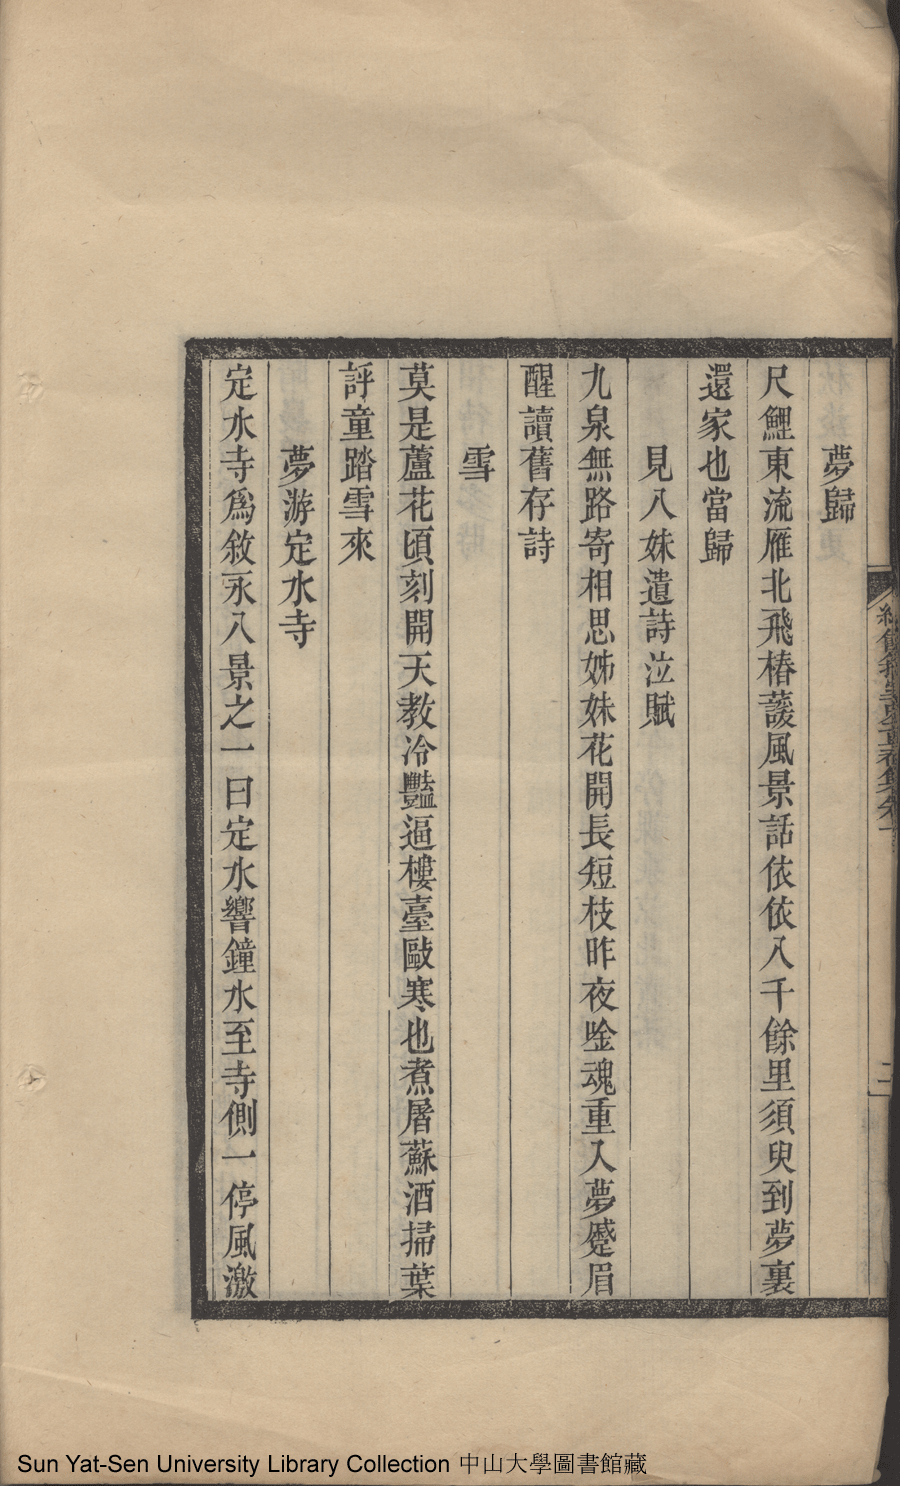 夢歸
尺鯉東流雁北飛椿蘐風景話依依八千餘里須臾到夢裏
還家也當歸
見八妹遺詩泣賦
九泉無路寄相思姊妹花開長短枝昨夜唫魂重入夢蹙眉
醒讀舊存詩
雪
莫是蘆花頃刻開天教冷豔逼樓臺敺寒也煮屠蘇酒掃葉
評童踏雪來
夢游定水寺
定水寺爲敘永八景之一曰定水響鐘水至寺側一停風激
Sun Yat-Sen University Library Collection 中山大學圖書館藏